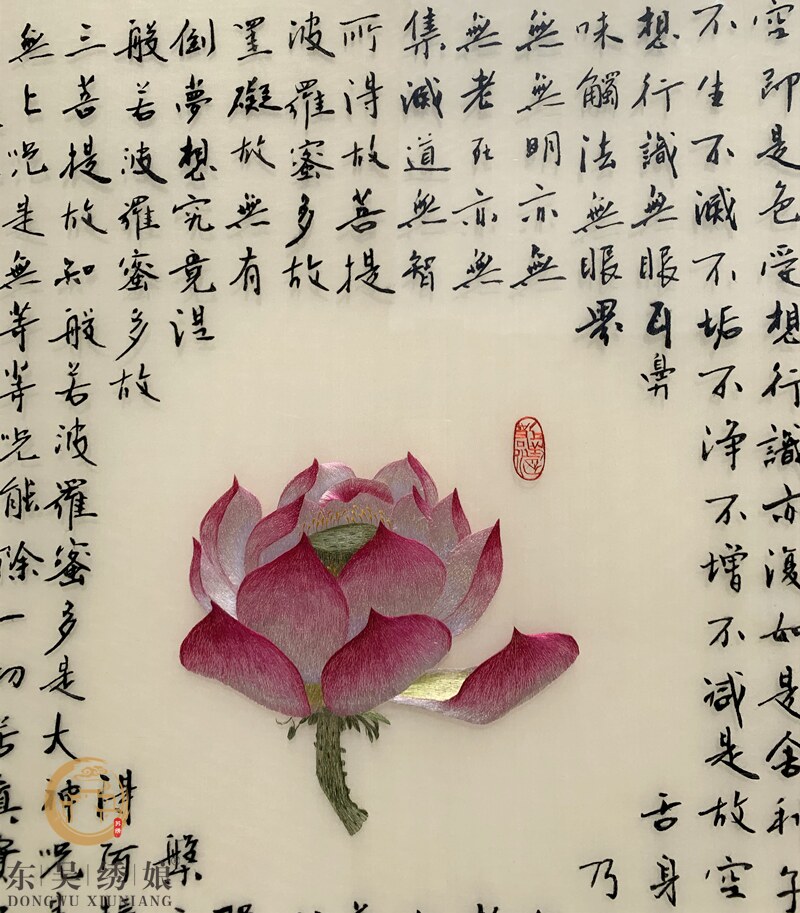 空即是色受想行識亦復如是舍利子
不生不滅不垢不淨不增不減是故空
想行識無眼耳鼻
舌身
味觸法無眼界
乃
無無明亦無
無老死亦無
集滅道無智
所得故菩提
波羅蜜多故
罣礙故無有
倒夢想究竟涅
槃
般若波羅蜜多故
得阿
三菩提故知般若波羅蜜多是大神咒
無上咒是無等等咒能除一切苦真實
东吴绣娘
DONGWU XIUNIANG